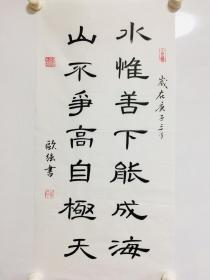 水惟善下能成海
山不争高自極天
歲在庚子三月
歐強書